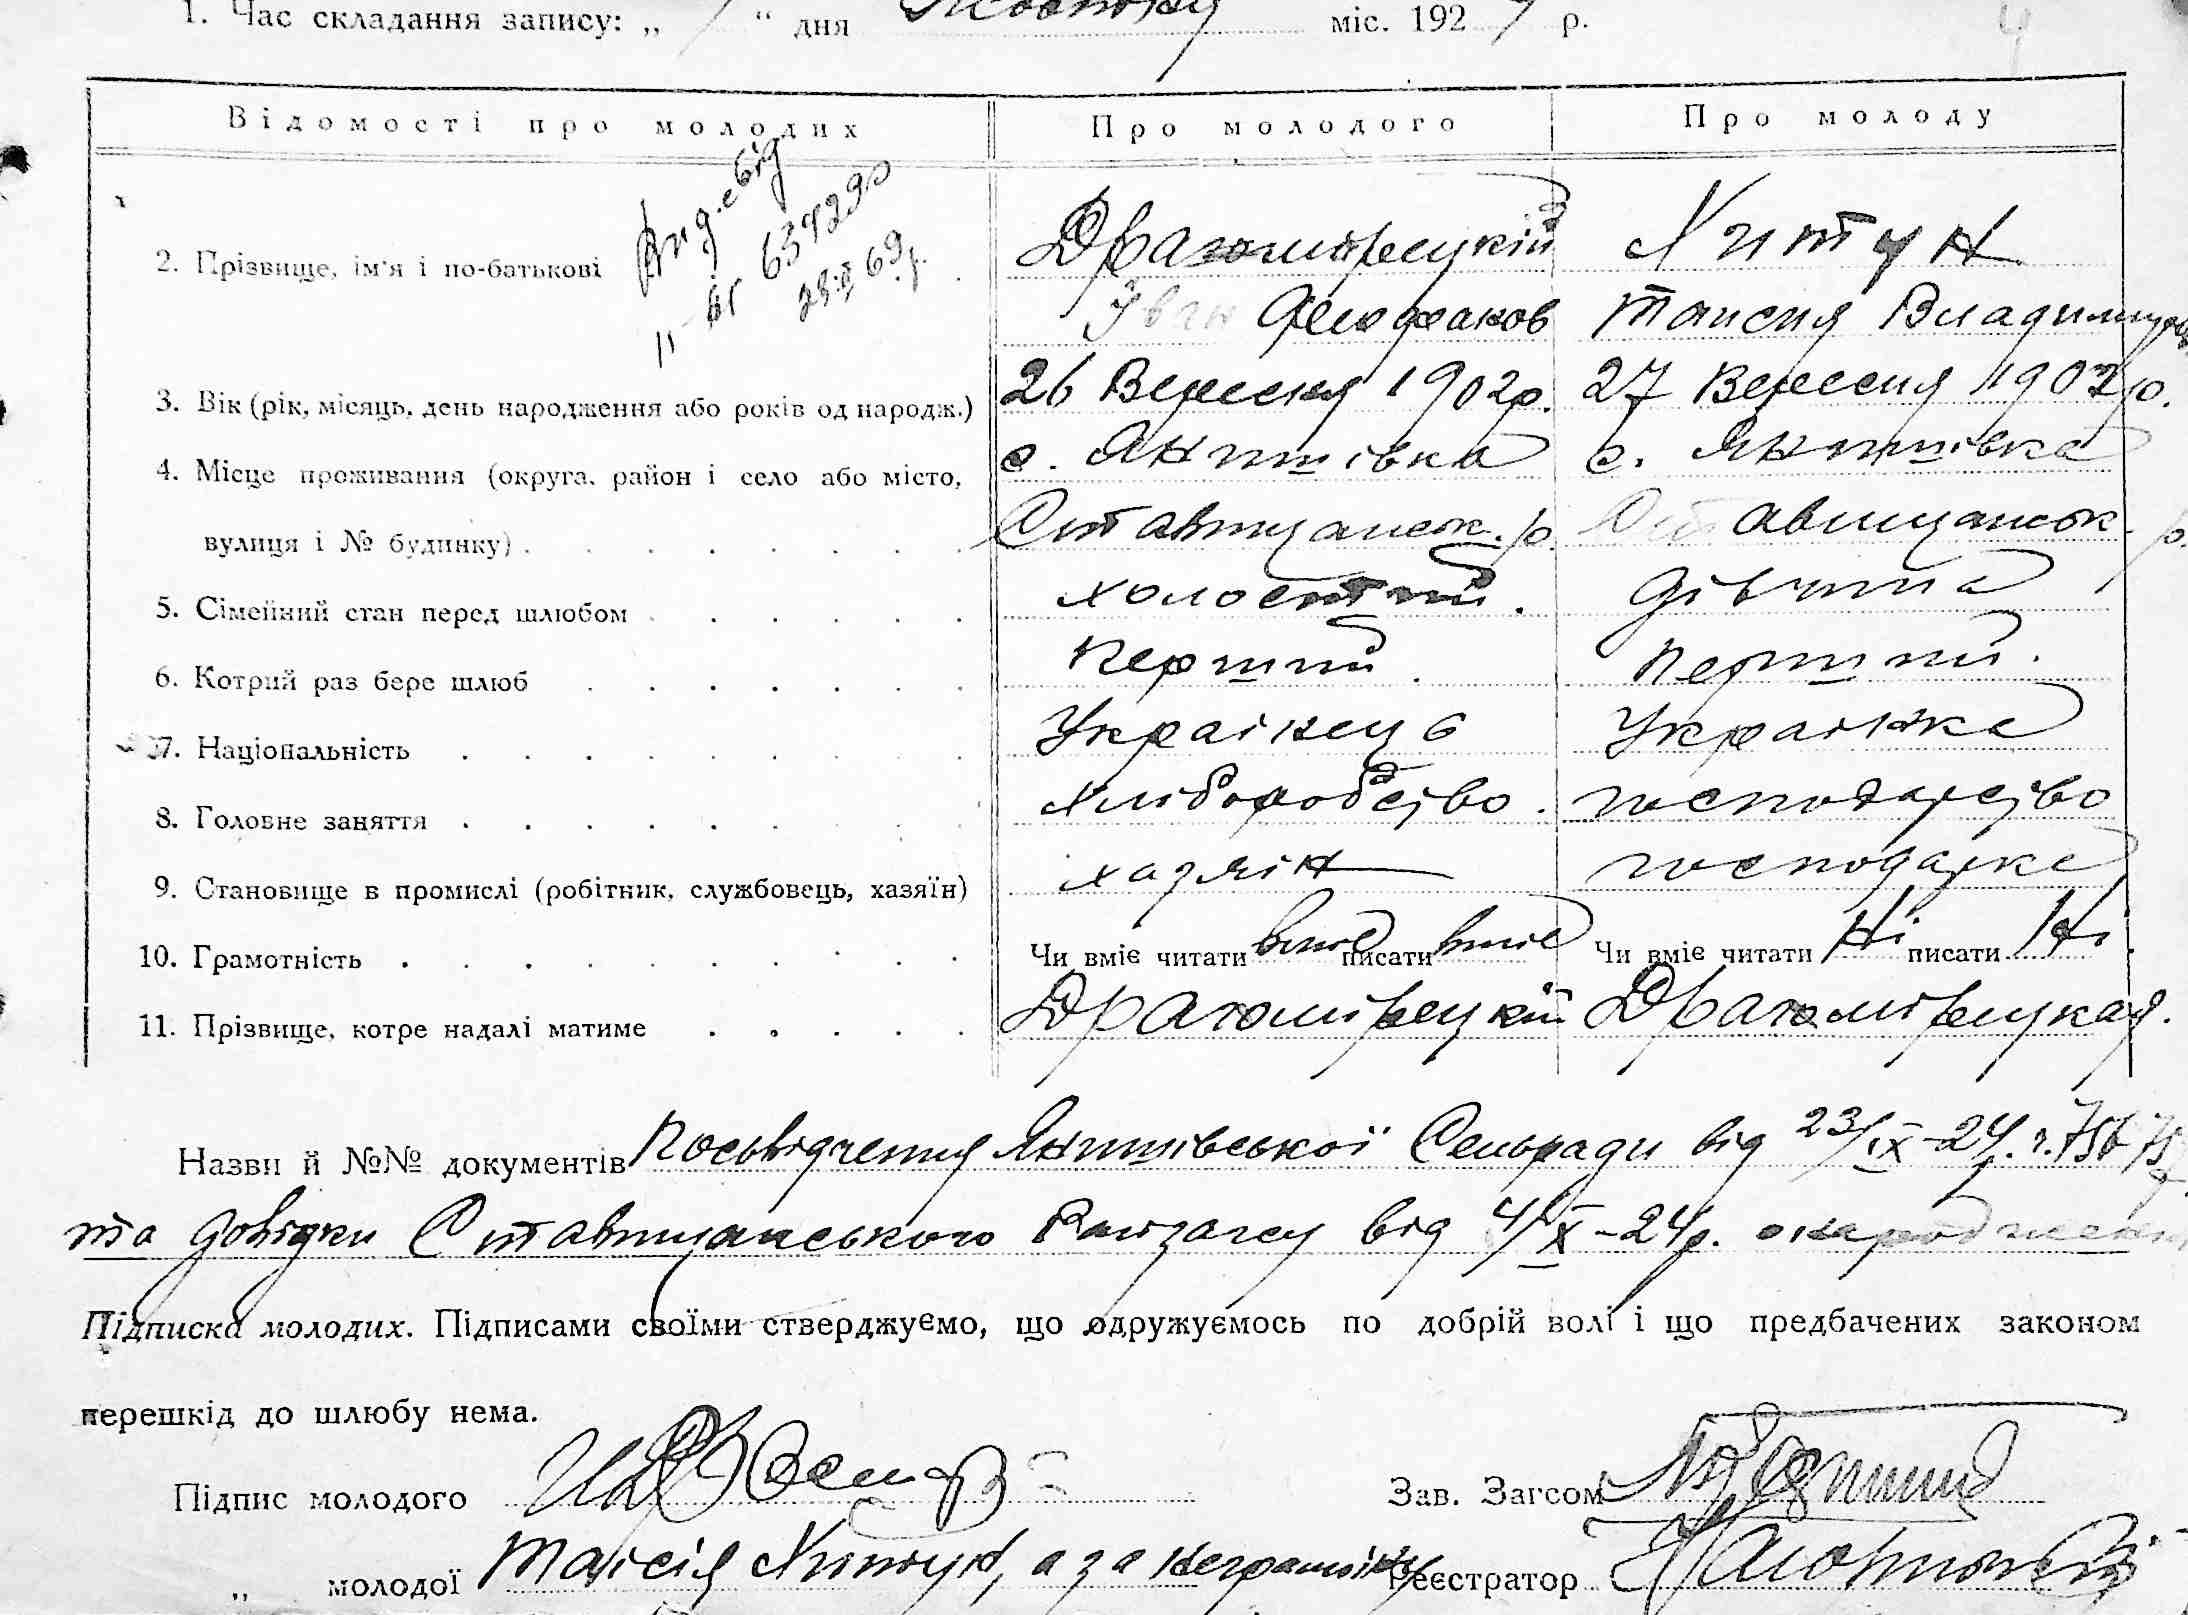 1. Час складання запису: „ " дня міс. 192 р.
Відомості про молодих Про молодого Про молоду
2. Прізвище, ім'я і по-батькові Драгомірецкій Хитун
Іван Таисия Владимиров
28.II 69р.
3. Вік (рік, місяць, день народження або років од народж.) 26 Вересня 1902р. 27 Вересня 1902р.
4. Місце проживання (округа, район і село або місто, с. Янишівка с. Янишівка
вулиця і № будинку) Ставищанськ. р. Ставищанськ. р.
5. Сімейний стан перед шлюбом холостий. дівчина
6. Котрий раз бере шлюб Перший. Перший.
7. Національність Українець Українка
8. Головне заняття хліборобство. господарство
9. Становище в промислі (робітник, службовець, хазяїн) хазяін господарка
10. Грамотність Чи вміє читати вміє писати вміє Чи вміє читати Ні писати Ні.
11. Прізвище, котре надалі матиме Драгомірецкій Драгомірецкая.
Назви й №№ документів Посвідчення Янишівської Сельради від 23/IX-24р.
та довідки Ставищанського Райзагсу від 4/X-24р. о народженн
Підписка молодих. Підписами своїми стверджуємо, що одружуємось по добрій волі і що предбачених законом
перешкід до шлюбу нема.
Підпис молодого Зав. Загсом
„ молодої Таісія Хитун, а за неграмотну Реєстратор